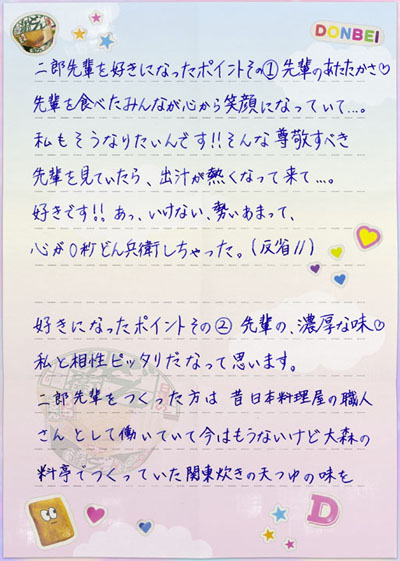 DONBEI
二郎先輩を好きになったポイントその①先輩のあたたかさ♡
先輩を食べたみんなが心から笑顔になっていて…。
私もそうなりたいんです!!そんな尊敬すべき
先輩を見ていたら、出汁が熱くなって来て…。
好きです!!あっ、いけない、勢いあまって、
心が0秒どん兵衛しちゃった。(反省//)
好きになったポイントその② 先輩の、濃厚な味♡
私と相性ピッタリだなって思います。
二郎先輩をつくった方は 昔日本料理屋の職人
さんとして働いていて今はもうないけど大森の
料亭でつくっていた関東炊きの天つゆの味を
D